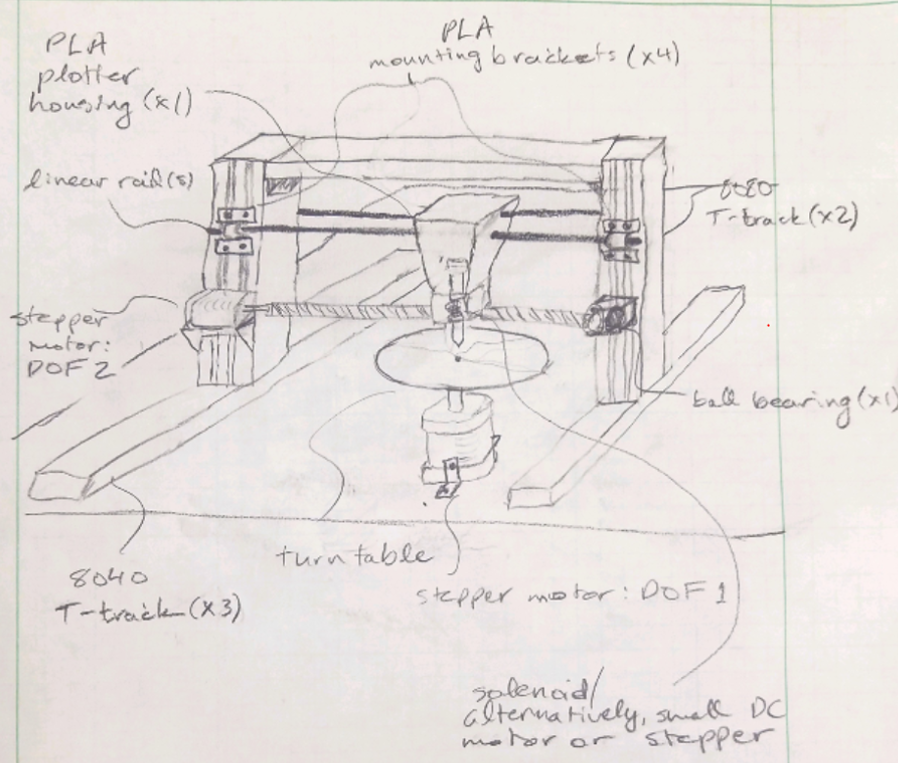 PLA
plotter
housing (x1)
PLA
mounting brackets (x4)
linear rail(s)
8080
T-track (x2)
stepper
motor:
DOF 2
ball bearing (x1)
turntable
8040
T-track (x3)
stepper motor: DOF 1
solenoid/
alternatively, small DC
motor or stepper